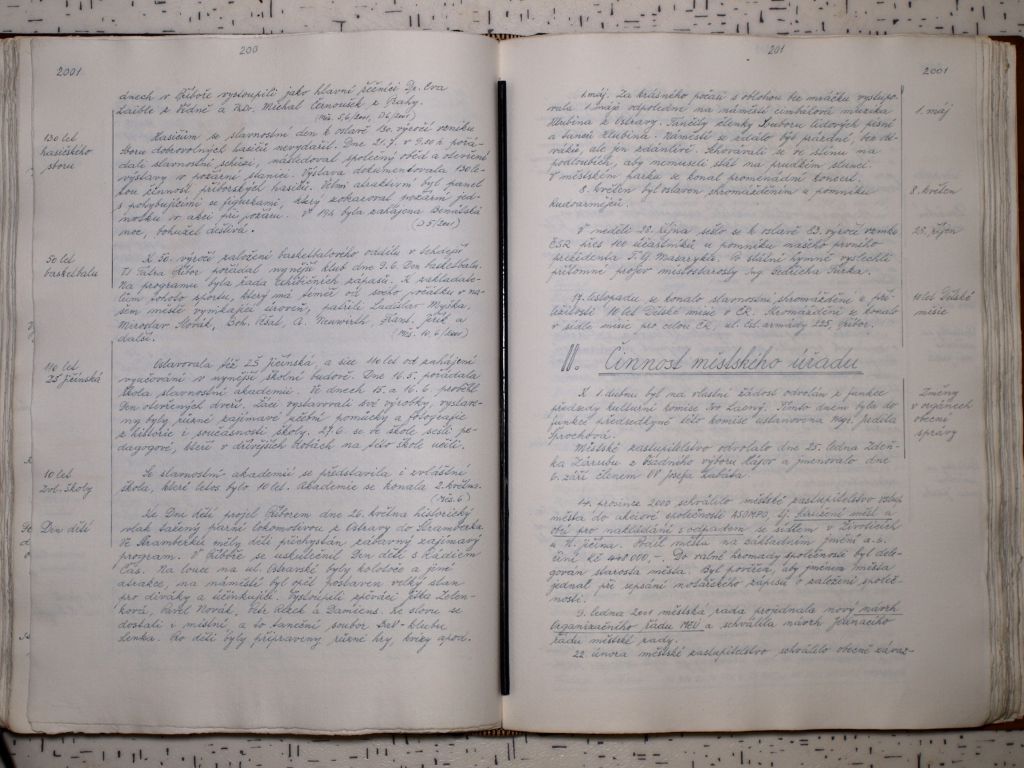 200
2001
dnech v Příboře vystoupili jako hlavní řečníci Dr. Eva
Laible z Vídně a PhDr. Michal Černoušek z Prahy.
130 let
hasičského
sboru
Hasičům se slavnostní den k oslavě 130. výročí vzniku
sboru dobrovolných hasičů nevydařil. Dne 21.7. v 9.30 h pořá-
dali slavnostní schůzi, následoval společný oběd a otevření
výstavy v požární stanici. Výstava dokumentovala 130le-
tou činnost příborských hasičů. Velmi atraktivní byl panel
s pohybujícími se figurkami, který zobrazoval požární jed-
notku v akci při požáru. V 19h byla zahájena Benátská
noc, bohužel deštivá.
50 let
basketbalu
K 50. výročí založení basketbalového oddílu v tehdejší
TJ Tatra Příbor pořádal nynější klub dne 9.6. Den basketbalu.
Na programu byla řada žebříčních zápasů. K zakladate-
lům tohoto sportu, který má téměř od svého počátku v na-
šem městě vynikající úroveň, patřili Ladislav
Miroslav Boh. A. Neuwirth, Frant. a
další.
(Měs. 10, 6/2001)
110 let
ZŠ Jičínská
Oslavovala též ZŠ Jičínská, a sice 110 let od zahájení
vyučování v nynější školní budově. Dne 16.5. pořádala
škola slavnostní akademii. Ve dnech 15. a 16.6. proběhl
Den otevřených dveří. Žáci vystavovali své výrobky, vystave-
ny byly různé zajímavé učební pomůcky a fotografie
z historie i současnosti školy. 27.6. se ve škole sešli pe-
dagogové, kteří v dřívějších dobách na této škole učili.
10 let
Zvl. školy
Se slavnostní akademií se představila i zvláštní
škola, které letos bylo 10 let. Akademie se konala 2. května.
(Měs. 6)
Den dětí
Ke Dni dětí projel Příborem dne 26. května historický
vlak tažený parní lokomotivou z Ostravy do Štramberka.
Ve Štramberku měly děti přichystán zábavný zajímavý
program. V Příboře se uskutečnil Den dětí s Rádiem
Čas. Na louce na ul. Ostravské byly kolotoče a jiné
atrakce, na náměstí byl opět postaven velký stan
pro diváky a účinkující. Vystoupili zpěváci Jitka Zelen-
ková, Pavel Novák, Petr Rezek a Damiens. Ke slovu se
dostali i místní, a to taneční soubor DeN-klubu
Lenka. Pro děti byly připraveny různé hry, kvízy apod.
201
2001
1. máj
1. máj. Za krásného počasí s oblohou bez mráčku vystupo-
vala 1. máje odpoledne na náměstí cimbálová muzika
Hlubina z Ostravy. Tančily členky Souboru lidových písní
a tanců Hlubina. Náměstí se zdálo být prázdné, bez di-
váků, ale jen zdánlivě. Schovávali se ve stínu na
podloubích, aby nemuseli stát na prudkém slunci.
V městském parku se konal promenádní koncert.
8. květen
8. květen byl oslaven shromážděním u pomníku
rudoarmějců.
28. říjen
V neděli 28. října sešlo se k oslavě 83. výročí vzniku
ČSR přes 100 účastníků u pomníku našeho prvního
prezidenta T. G. Masaryka. Po státní hymně vyslechli
přítomní projev místostarosty Ing. Bedřicha Turka.
10 let Dětské
misie
17. listopadu se konalo slavnostní shromáždění u pří-
ležitosti 10 let Dětské misie v ČR. Shromáždění se konalo
v sídle misie pro celou ČR, ul. Čsl. armády 225, Příbor.
II. Činnost městského úřadu
Změny
v orgánech
obecní
správy
K 1. dubnu byl na vlastní žádost odvolán z funkce
předsedy kulturní komise Ivo Lacný. Tímto dnem byla do
funkce předsedkyně této komise ustanovena Mgr. Jedita
Sprochová.
Městské zastupitelstvo odvolalo dne 25. ledna Zdeň-
ka Zárubu z Osadního výboru Hájov a jmenovalo dne
6. září členem OV Josefa Kubáta.
14. prosince 2000 schválilo městské zastupitelstvo vstup
města do akciové společnosti ASOMPO, tj. sdružení měst a
obcí pro nakládání s odpadem se sídlem v Životicích
u N. Jičína. Podíl města na základním jmění a.s.
činí Kč 440 000,-. Do valné hromady společnosti byl dele-
gován starosta města. Byl pověřen, aby jménem města
jednal při sepsání notářského zápisu o založení společ-
nosti.
9. ledna 2001 městská rada projednala nový návrh
Organizačního řádu MěÚ a schválila návrh Jednacího
řádu městské rady.
22. února městské zastupitelstvo schválilo obecně závaz-